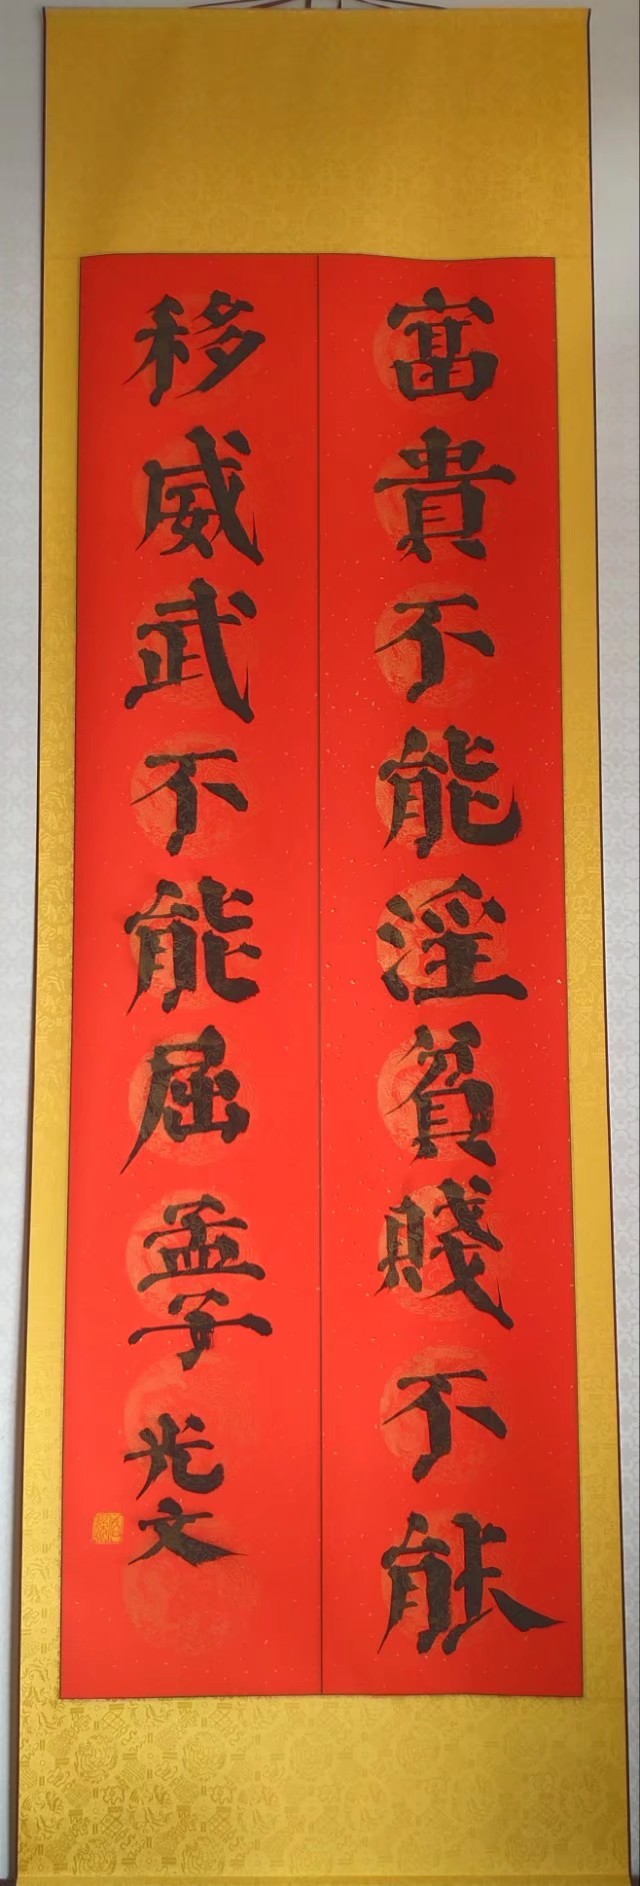 富貴不能淫貧賤不能
移威武不能屈孟子光文